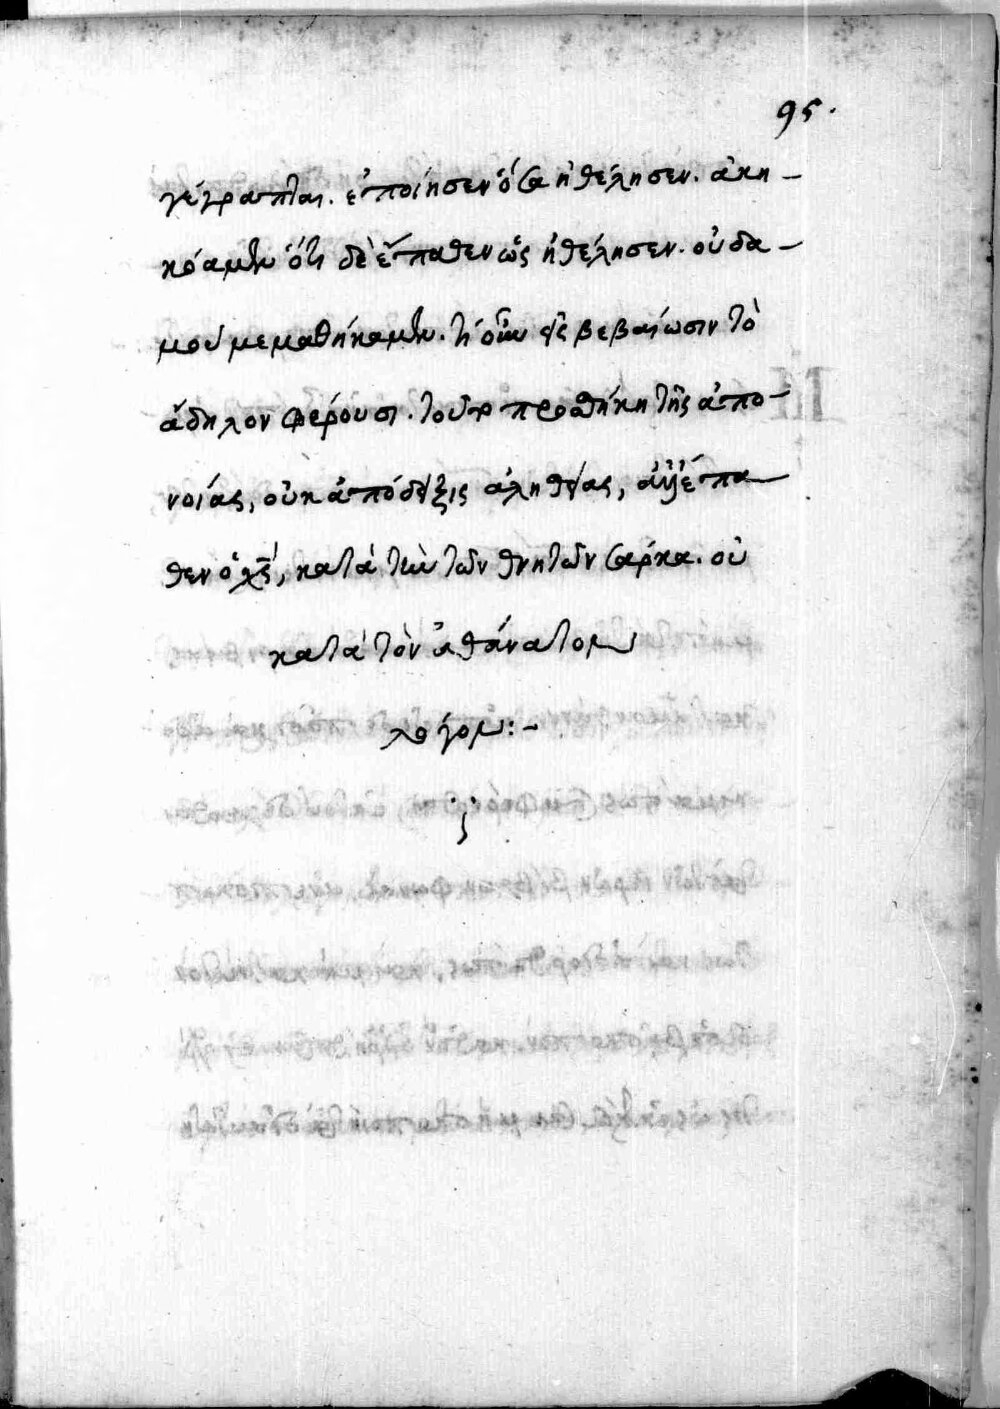 95.
γέγραπται. ἐποίησεν ὅσα ἠθέλησεν. ἀκη-
κόαμεν ὅτι δὲ ἔπαθεν ὡς ἠθέλησεν. οὐδα-
μοῦ μεμαθήκαμεν. τί οὖν εἰς βεβαίωσιν τὸ
ἄδηλον φέρουσι. τοῦτο προσθήκη τῆς ἀπο-
νοίας, οὐκ ἀπόδειξις ἀληθείας,
θεν ὁ χς, κατὰ τὴν τῶν θνητῶν σάρκα. οὐ
κατὰ τὸν ἀθάνατον
λόγον:-